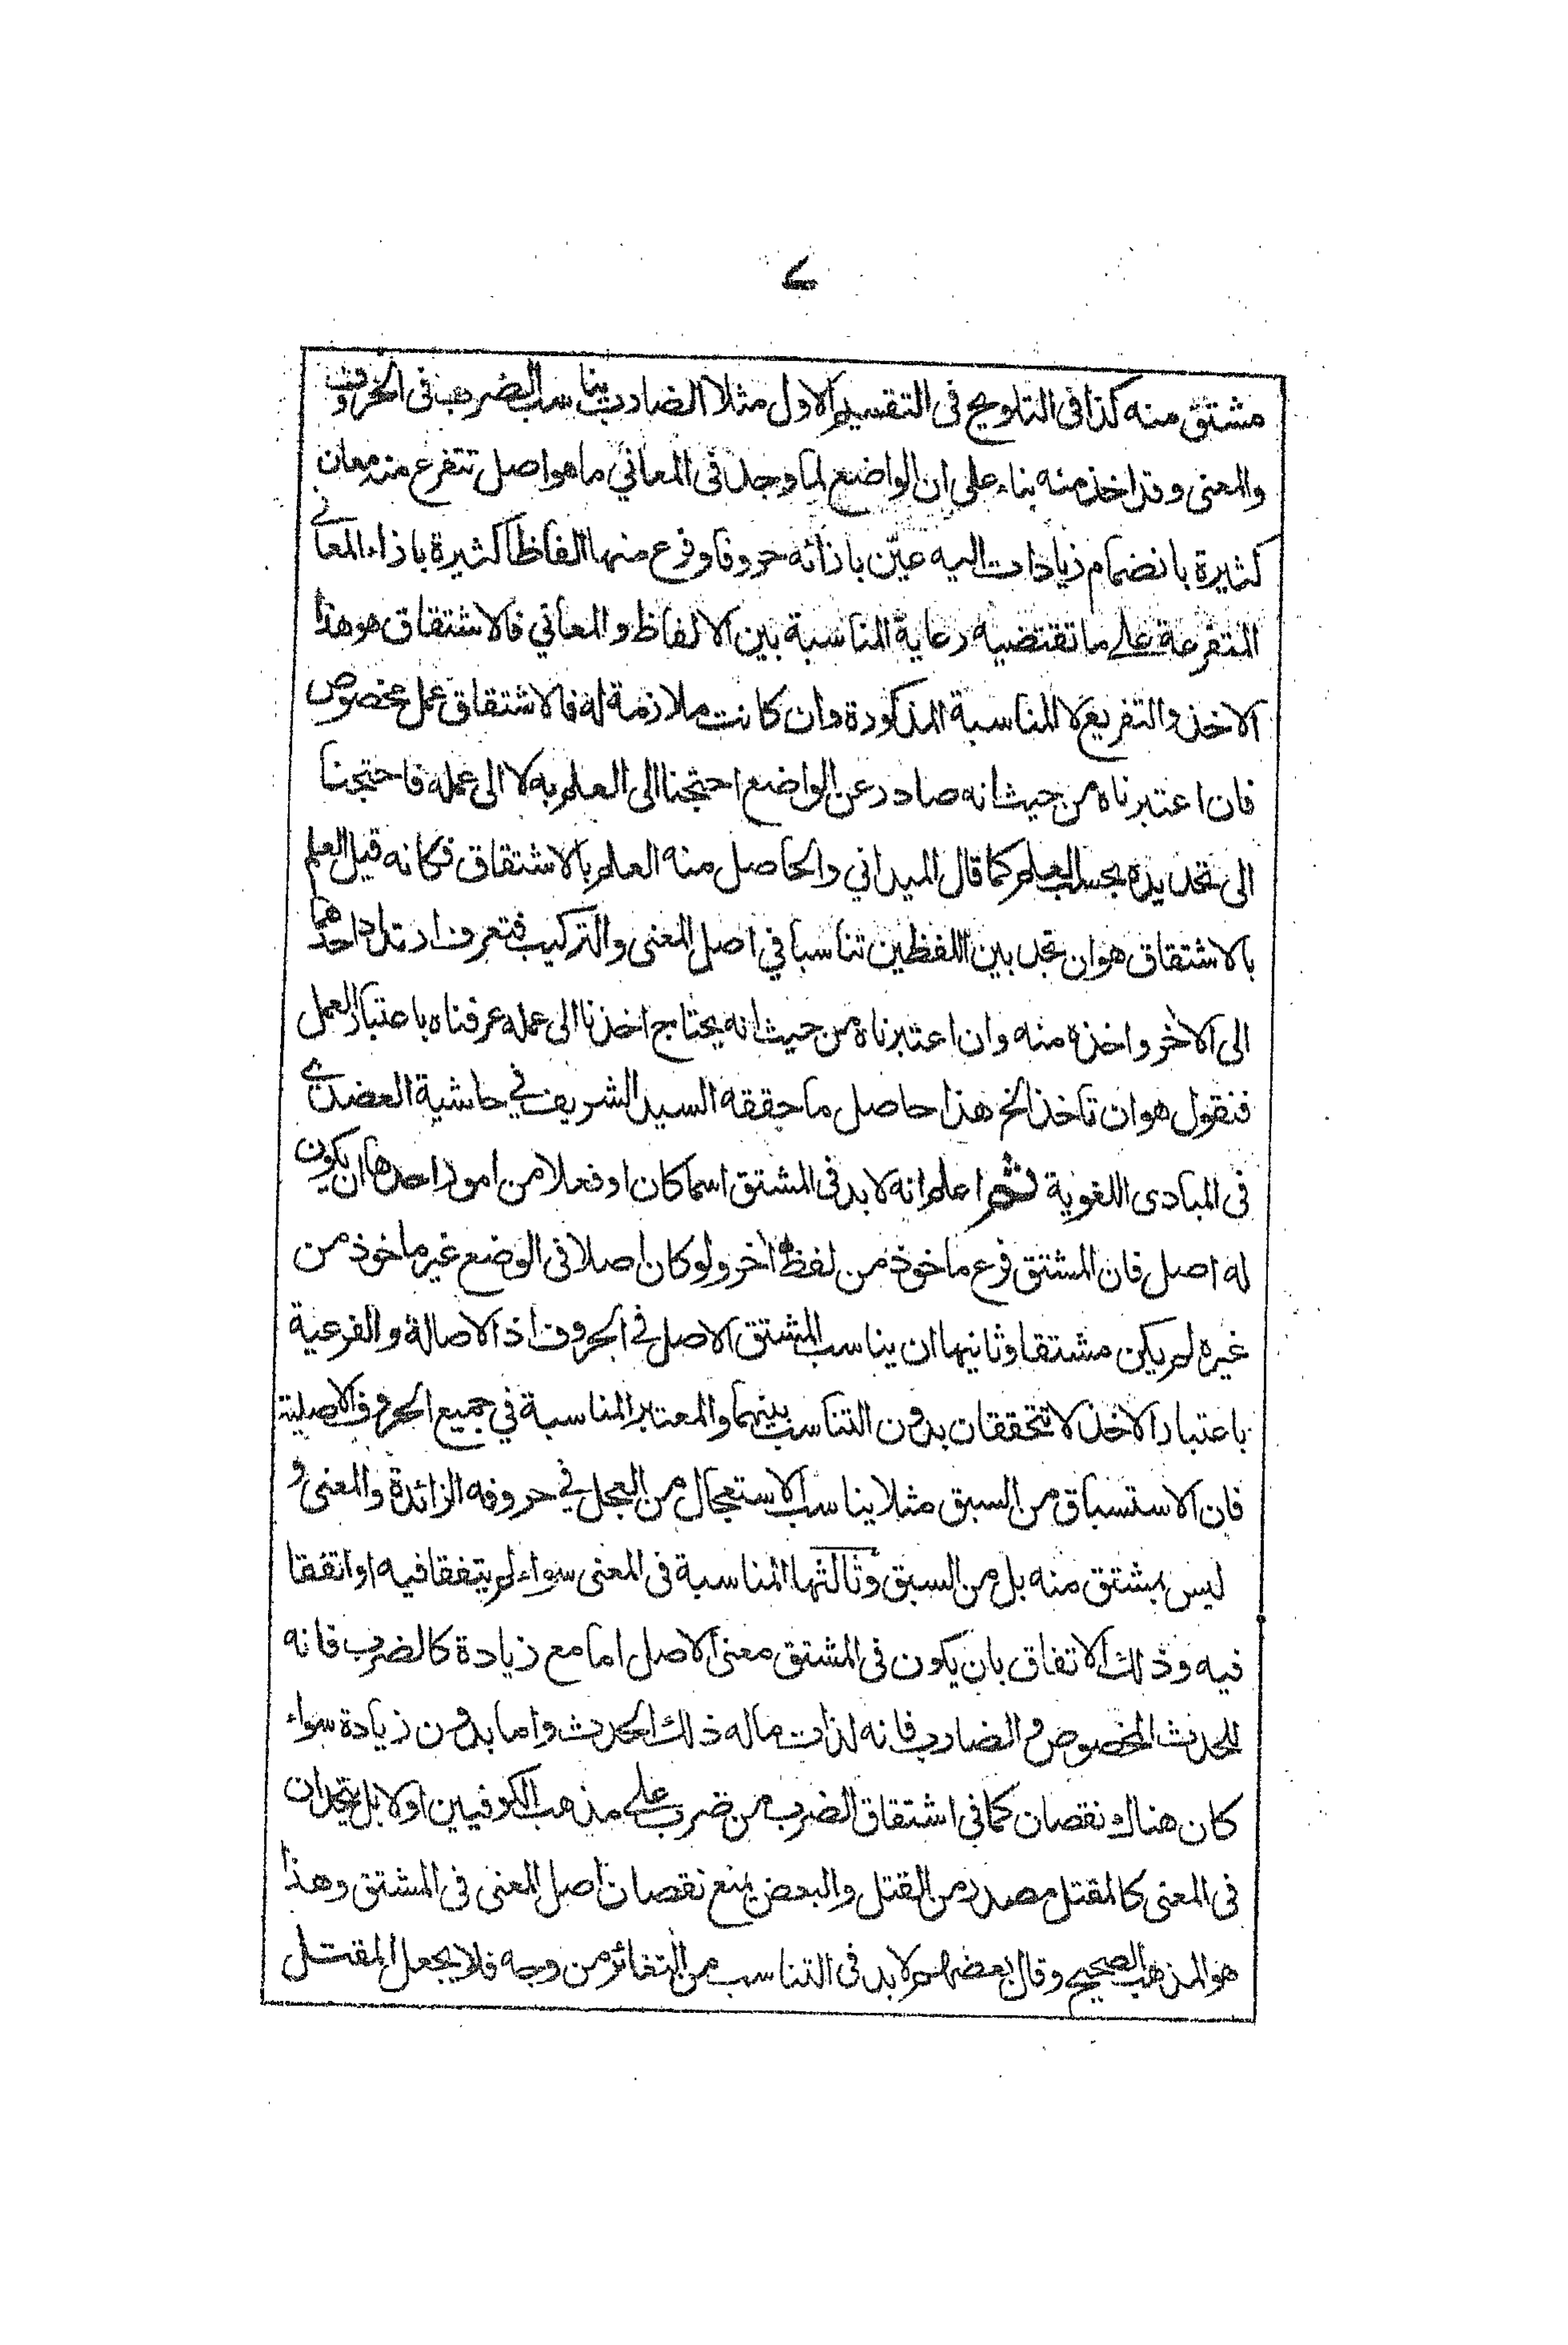 ۷
مشتق منه كذا فى التلويح فى التقسيم الاول مثلا الضارب يناسب الضرب فى الحروف
والمعنى وقد اخذ منه بناء على ان الواضع لما وجد فى المعاني ما هو اصل تتفرع منه معان
كثيرة بانضمام زيادات اليه عيّن بازائه حروفا وفرع منها الفاظا كثيرة بازاء المعاني
المتفرعة على ما تقتضيه رعاية المناسبة بين الالفاظ والمعاني فالاشتقاق هو هذا
الاخذ والتفريع لا المناسبة المذكورة وان كانت ملازمة له فالاشتقاق عمل مخصوص
فان اعتبرناه من حيث انه صادر عن الواضع احتجنا الى العلم به لا الى عمله فاحتجنا
الى تحديده بحسب العلم كما قال الميداني والحاصل منه العلم بالاشتقاق فكانه قيل العلم
بالاشتقاق هو ان تجد بين اللفظين تناسبا في اصل المعنى والتركيب فتعرف ارتداد احدهما
الى الاخر واخذه منه وان اعتبرناه من حيث انه يحتاج اخذنا الى عمله عرفناه باعتبار العمل
فنقول هو ان تاخذ الخ هذا حاصل ما حققه السيد الشريف في حاشية العضدي
فى المبادى اللغوية ثم اعلم انه لا بد فى المشتق اسما كان او فعلا من امور احدها ان يكون
له اصل فان المشتق فرع ماخوذ من لفظ آخر ولو كان اصلا فى الوضع غير ماخوذ من
غيره لم يكن مشتقا وثانيها ان يناسب المشتق الاصل في الحروف اذ الاصالة والفرعية
باعتبار الاخذ لا تتحققان بدون التناسب بينهما والمعتبر المناسبة في جميع الحروف الاصلية
فان الاستسباق من السبق مثلا يناسب الاستعجال من العجل في حروفه الزائدة والمعنى و
ليس بمشتق منه بل من السبق وثالثها المناسبة فى المعنى سواء لم يتفقا فيه او اتفقا
فيه وذلك الاتفاق بان يكون فى المشتق معنى الاصل اما مع زيادة كالضرب فانه
للحدث المخصوص والضارب فانه لذات ما له ذلك الحدث واما بدون زيادة سواء
كان هناك نقصان كما في اشتقاق الضرب من ضرب على مذهب الكوفيين او لا بل يتحدان
فى المعنى كالمقتل مصدر من القتل والبعض يمنع نقصان اصل المعنى فى المشتق وهذا
هو المذهب الصحيح وقال بعضهم لا بد فى التناسب من التغائر من وجه فلا يجعل المقتل